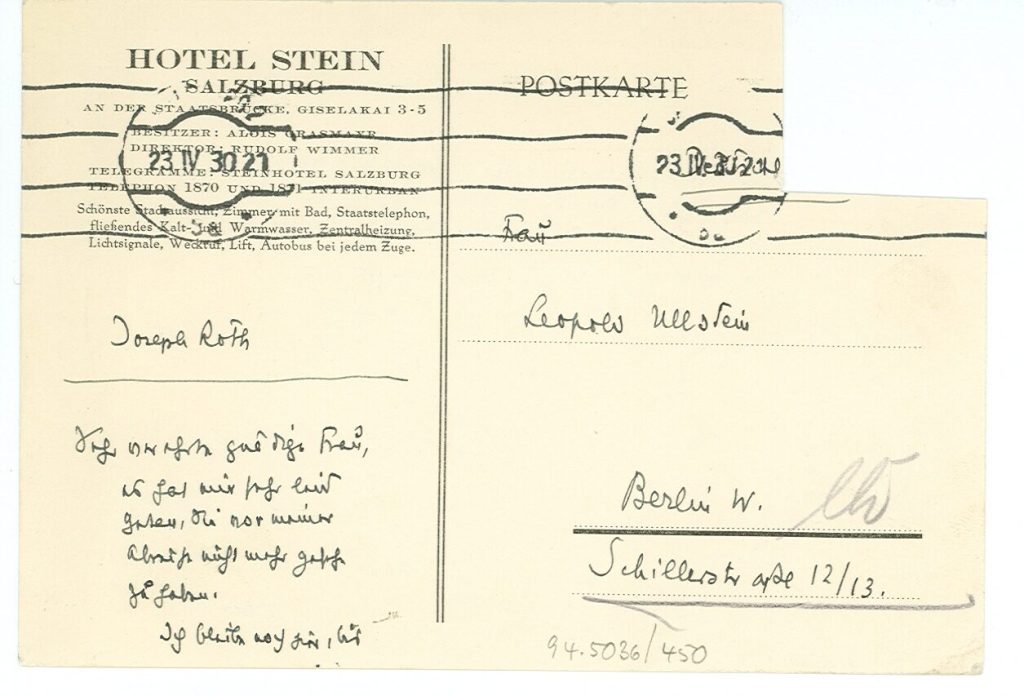 HOTEL STEIN
SALZBURG
AN DER STAATSBRÜCKE, GISELAKAI 3-5
BESITZER: ALOIS GRASMAYR
DIREKTOR: RUDOLF WIMMER
TELEGRAMME: STEINHOTEL SALZBURG
TELEPHON 1870 UND 1871 INTERURBAN
Schönste Stadtaussicht, Zimmer mit Bad, Staatstelephon,
fließendes Kalt- und Warmwasser, Zentralheizung,
Lichtsignale, Weckruf, Lift, Autobus bei jedem Zuge.
23 IV 30 21
Joseph Roth
Sehr verehrte gnädige Frau,
es hat mir sehr leid
getan, Sie vor meiner
Abreise nicht mehr gesehn
zu haben.
Ich bleibe noch hier, bis
POSTKARTE
23 IV 30
Frau
Leopold Ullstein
Berlin W.
Schillerstraße 12/13.
94.5036/450